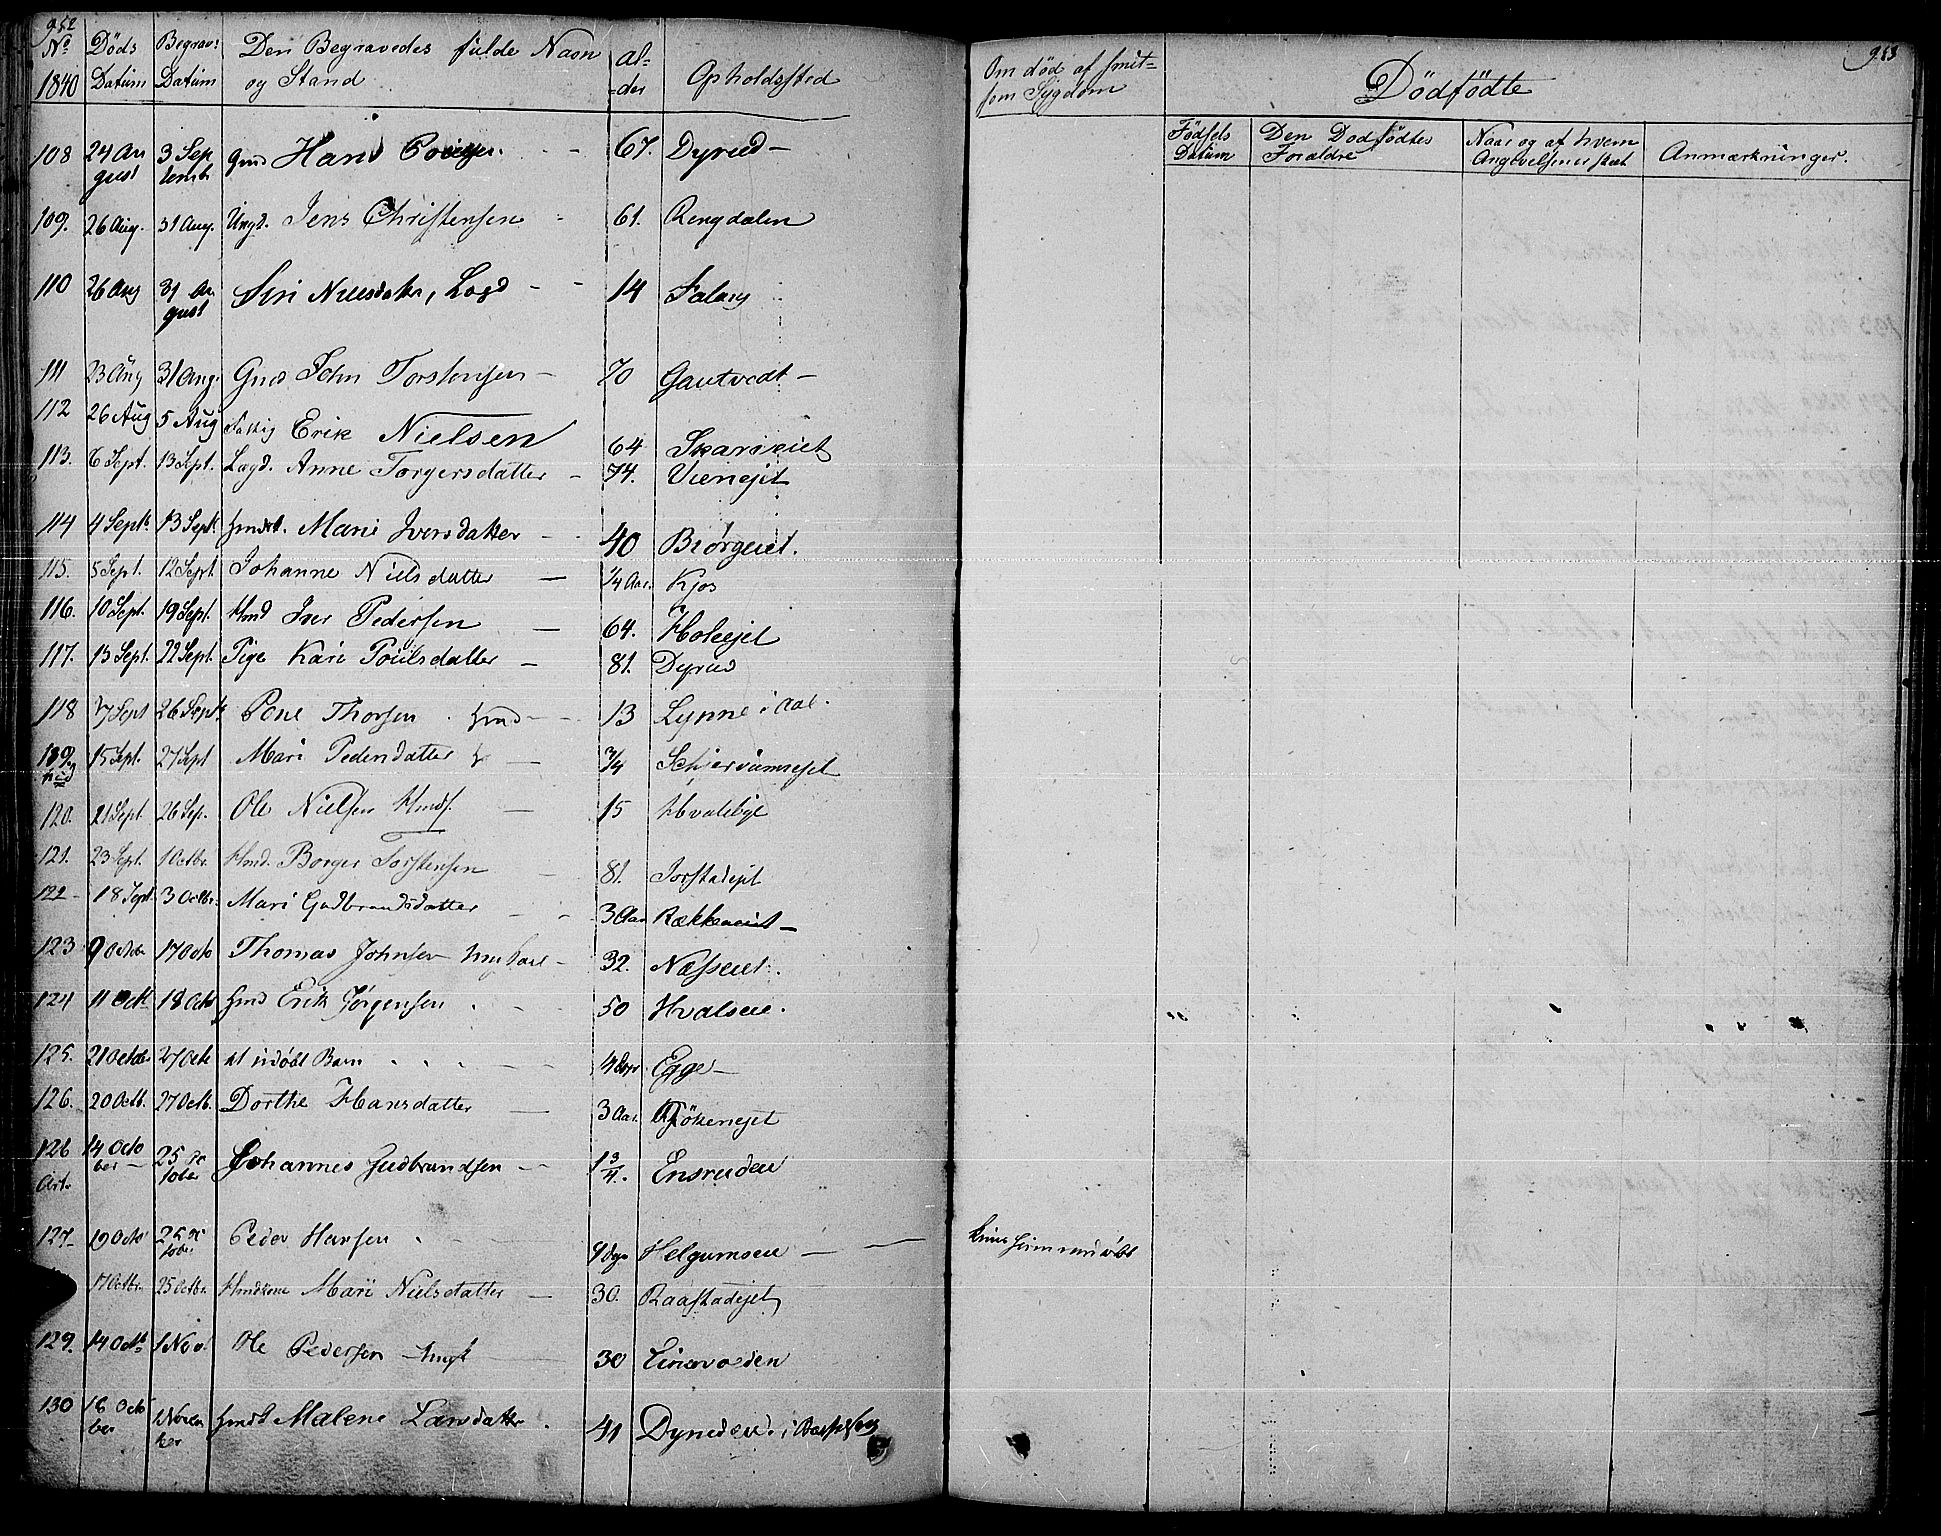 952
No Döds Begrav: Den Begravedes fulde Navn al- Opholdssted
1840 Datum Datum og Stand -der
108 24 Au 3 Sep Gmd Hans 67. Dyrud
gust temb
109. 26 Aug. 31 Aug. Ungk. Jens Christensen 61. Rengdalen
110 26 Aug 31 Au Siri Nilsdatter, Lægd 14 Falang
gust
111 23 Aug 31 Aug. Gmd John Torstensen 70 Gautvedt
112 26 Aug 5 Aug Fattig Erik Nielsen 64
113. 6 Sept. 13 Sept. Lægd. Anne Torgersdatter 74. Vienejet
114 4 Sept. 13 Sept. Marie Iversdatter 40 Biørgeiet.
115. 5 Sept. 12 Sept. Johanne Nielsdatter 1/4 Aar. Kjos
116. 10 Sept. 19 Sept. Hmd Iver Pedersen 64. Holeejet
117. 13 Sept. 22 Sept. Pige Kari Poulsdatter 81. Dyrud
118 17 Sept 26 Sept. Thorsen 13 Lynne i Aal.
119. 15 Sept. 27 Sept Mari Pedersdatter 3/4 Schiervumsejet
120. 21 Sept 26 Sep. Ole Nielsen Hmds. 15 Hvalebye
121. 23 Sept. 1 Octbr. Hmd. Borger Torstensen 81. Jorstadejet
122 18 Sept 3 Octbr. Mari Gudbrandsdatter 3 Aar Rækkeneiet
123 9 Octobr 17 Octo Thomas Johnsen Ungkarl 32. Næsseiet.
124 11 Oct 18 Octo Hmd Erik Jørgensen 50 Hvalseie.
125. 21 Octob 27 Octb et udøbt Barn 4 Dage Egge
126. 20 Octb. 27 Octb. Dorthe Hansdatter 3 Aar. Kjökenejet
126 14 Octo 25 Oc Johannes Gudbrandsen 1 3/4. Ensrudeie
ber tober
127 19 Octo 25 Oc Peder Hansen 9 Dage Helgumseie
tober
17 Octbr. 25 Octbr. Hmdkone Mari Nielsdatter 30. Raastadejet
129. 14 Octb 1 Nov. Ole Pedersen Ungk 30 Einavolden
130 16 Octo 1 Novem Malene Larsdatter 41 i
ber ber
953
Om død af smit-
som Sygdom
Dödfödte
Födsels Den Dodfödtes Naar og af hvem Anmærkninger.
Datum Foraldre Angivelsen er skeet